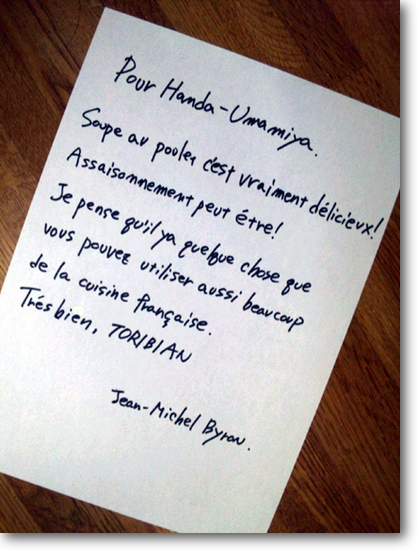 Pour Handa-Umamiya.
Soupe au poulet c'est vraiment délicieux!
Assaisonnement peut étre!
Je pense qu'il ya quelque chose que
vous pouvez utiliser aussi beaucoup
de la cuisine française.
Trés bien, TORIBIAN
Jean-Michel Byron.